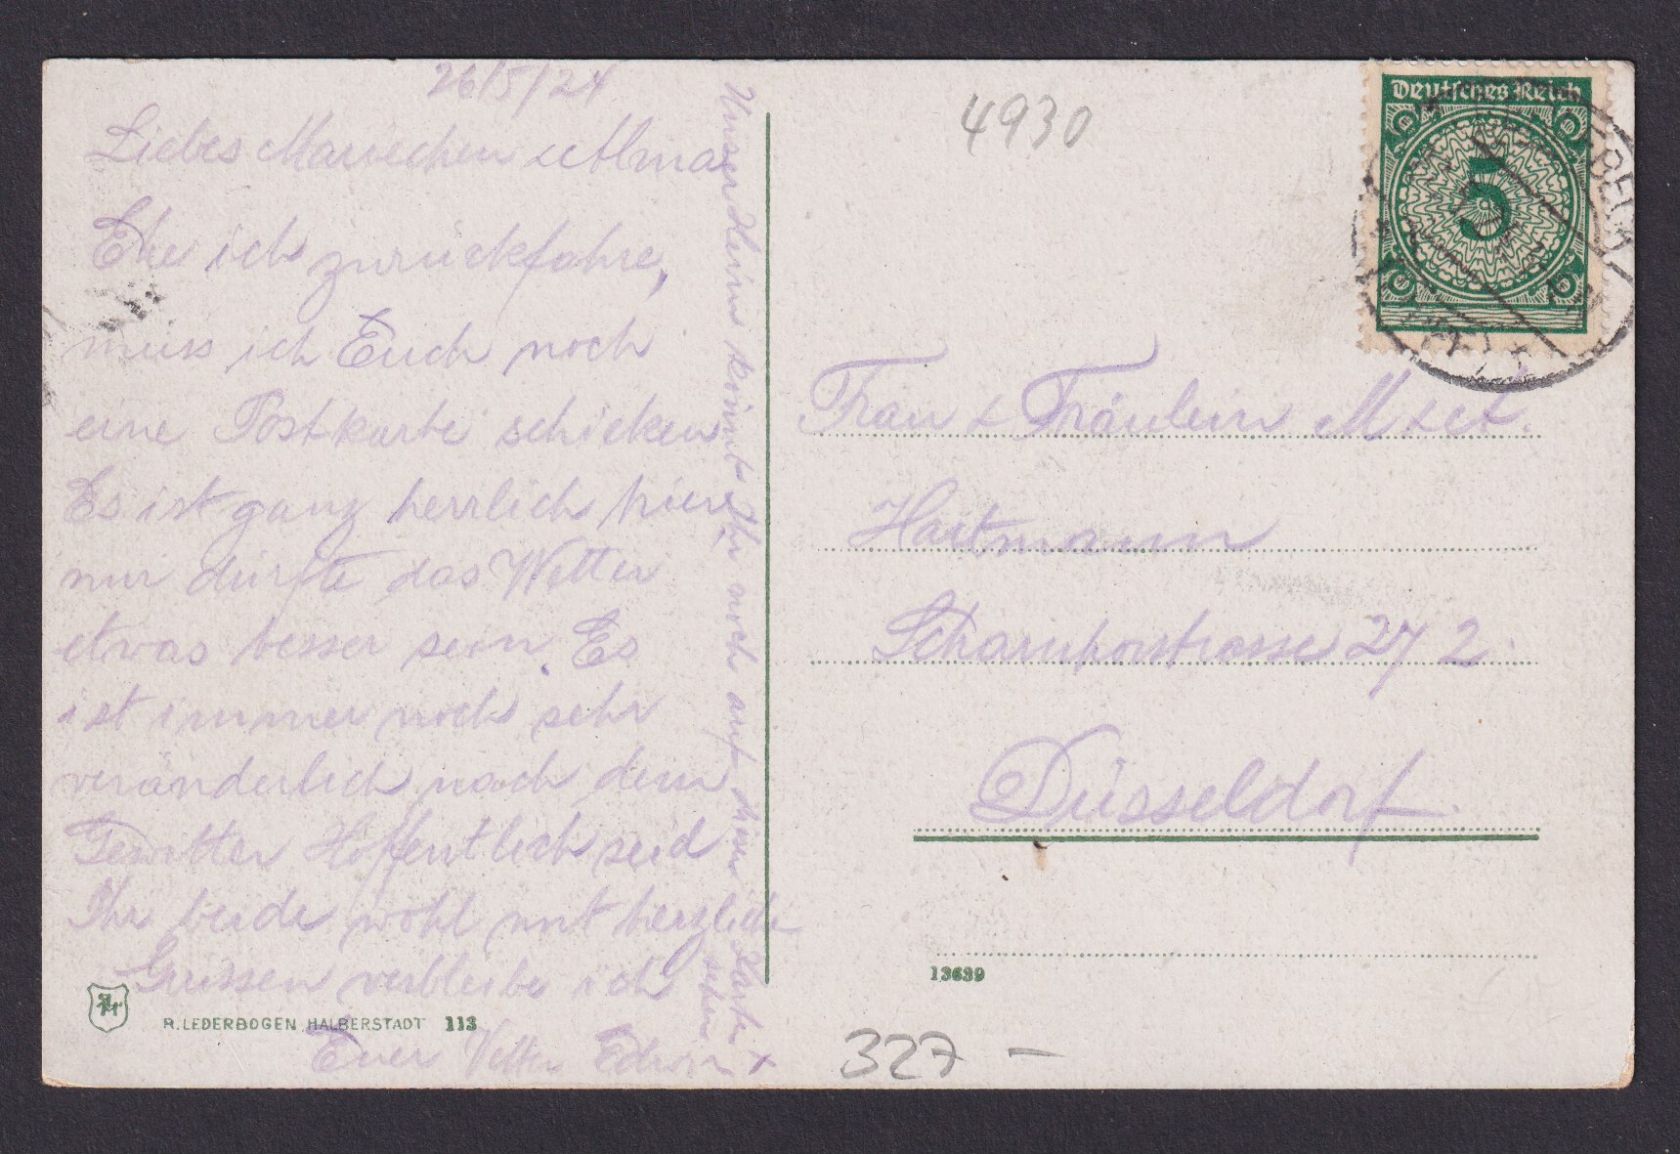 26/5/24
Liebes Mariechen u Alma
Ehe ich zurückfahre,
muss ich Euch noch
eine Postkarte schicken
Es ist ganz herrlich hier
nur dürfte das Wetter
etwas besser sein. Es
ist immer noch sehr
veränderlich nach dem
Gewitter Hoffentlich seid
Ihr beide wohl mit herzliche
Grüssen verbleibe ich
Euer Vetter Edwin x
Unser Heim könnt Ihr noch auf dieser Karte
sehen
R. LEDERBOGEN, HALBERSTADT 113
4930
Deutsches Reich
5
Frau & Fräulein M
Hartmann
Scharnhorststrasse 27 2.
Düsseldorf.
13639
327 –